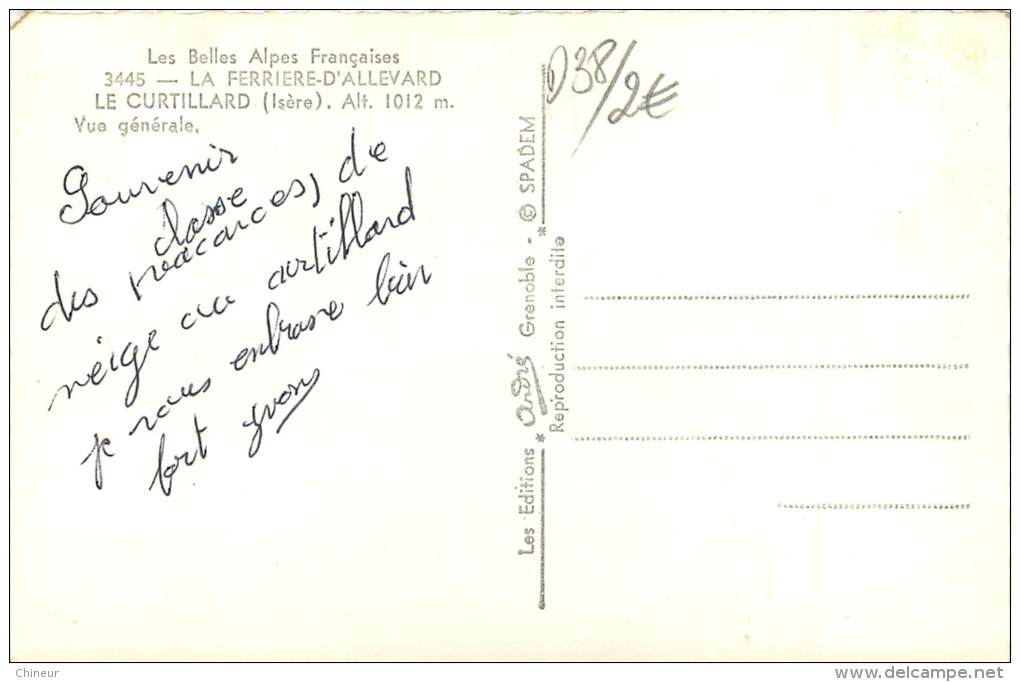 Les Belles Alpes Françaises
3445 — LA FERRIERE-D'ALLEVARD
LE CURTILLARD (Isère). Alt. 1012 m.
Vue générale.
Souvenir
classe
des vacances, de
neige au curtillard
je vous embrasse bien
fort yvon
D38/2€
Les Editions * André * Grenoble - © SPADEM
Reproduction interdite
Chineur
www.delcampe.net